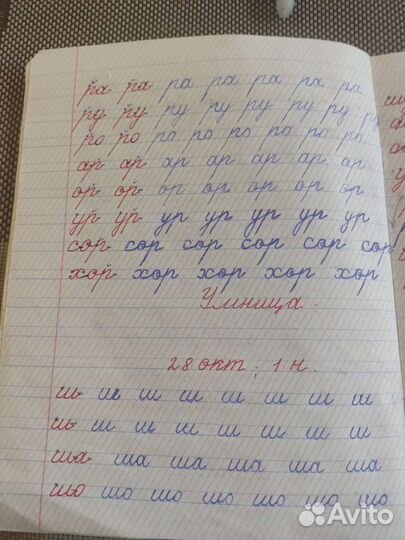 ра ра ра ра ра ра ра
ру ру ру ру ру ру ру
ро ро ро ро ро ро ро
ар ар ар ар ар ар ар
ор ор ор ор ор ор ор
ур ур ур ур ур ур ур
сор сор сор сор сор сор
хор хор хор хор хор
Умница.
28 окт. 1 ч.
ш ш ш ш ш ш ш ш
ш ш ш ш ш ш ш ш
ша ша ша ша ша ша
шо шо шо шо шо шо шо
Avito